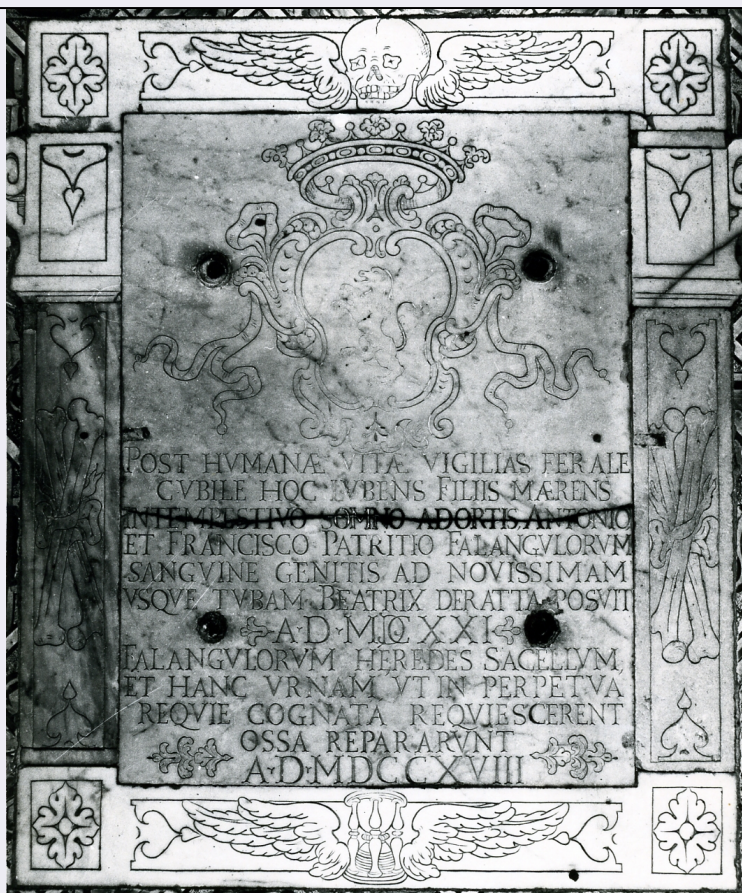 POST HVMANÆ VITÆ VIGILIAS FERALE
CVBILE HOC LVBENS FILIIS MÆRENS
INTEMPESTIVO SOMNO ADORTIS ANTONIO
ET FRANCISCO PATRITIO FALANGVLORVM
SANGVINE GENITIS AD NOVISSIMAM
VSQVE TVBAM BEATRIX DERATTA POSVIT
A·D·MDCXXI
FALANGVLORVM HEREDES SACELLVM,
ET HANC VRNAM VT IN PERPETVA
REQVIE COGNATA REQVIESCERENT
OSSA REPARARVNT
A·D·MDCCXVIIII